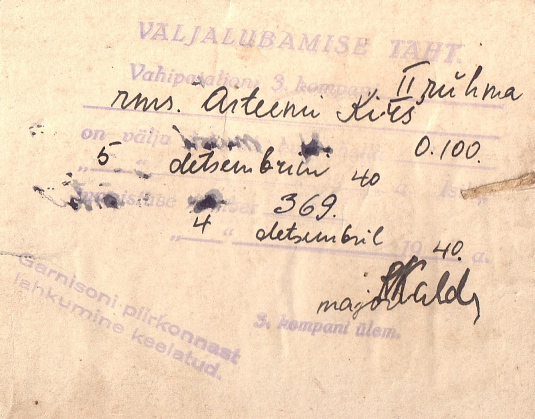 VÄLJALUBAMISE TÄHT.
Vahipataljoni 3. kompani II rühma
rms. Arteemi Kirs
on välja 0.100.
5 detsembrini 40 a.
number 369.
"4" detsembril 1940. a.
major
3. kompani ülem.
Garnisoni piirkonnast
lahkumine keelatud.